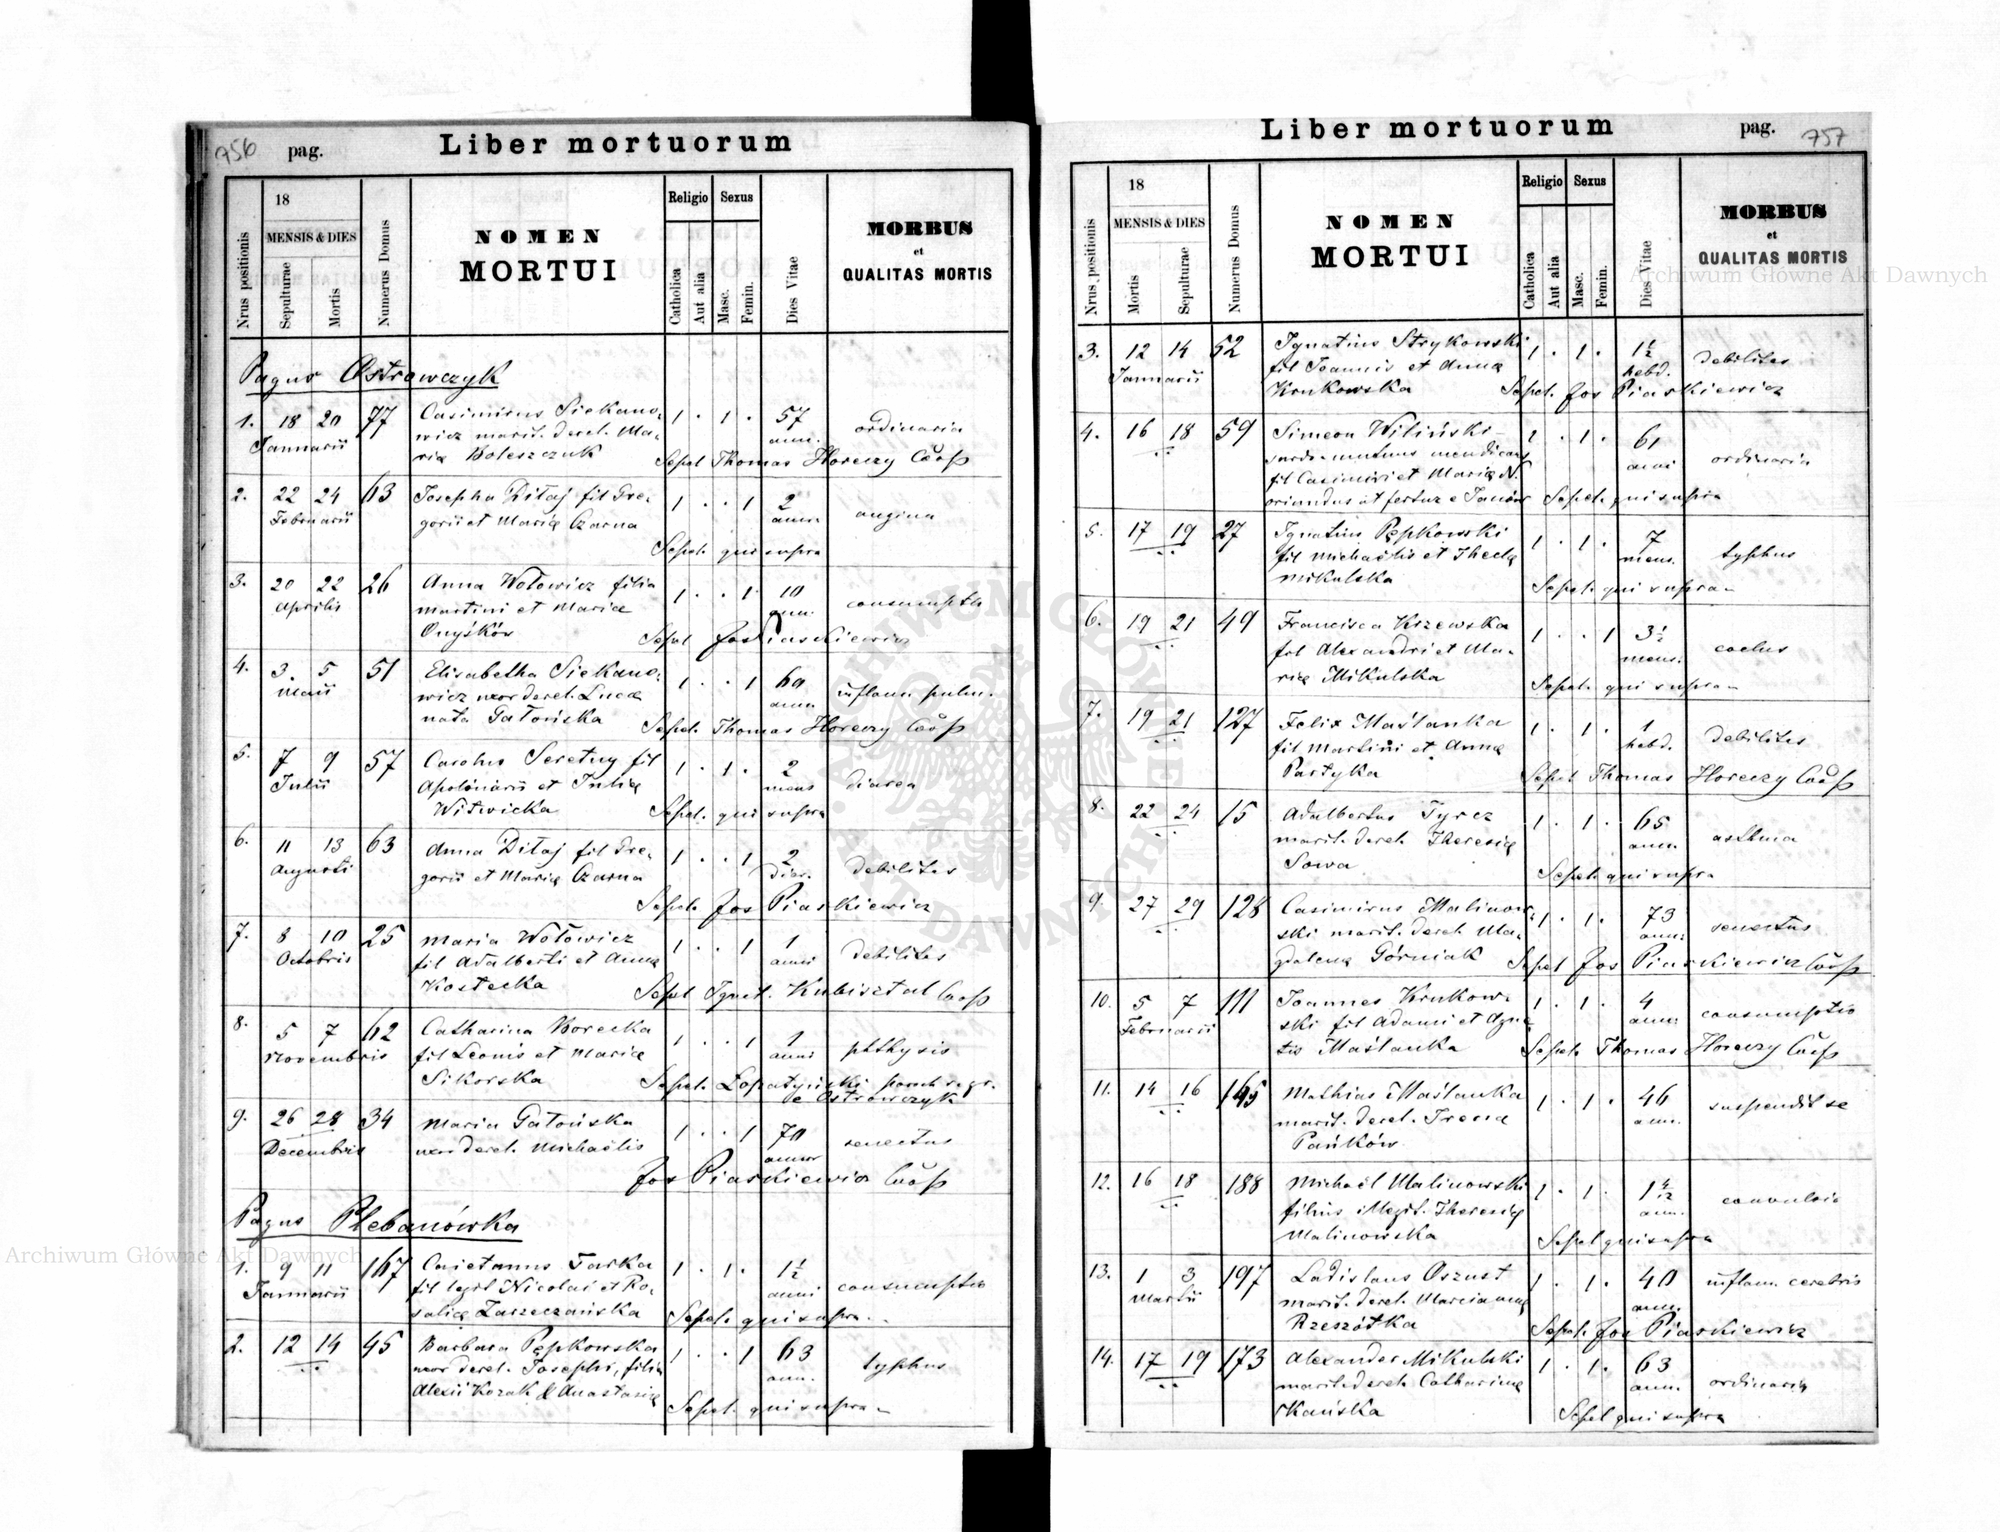 956 pag. Liber mortuorum
Nrus positionis
18
MENSIS & DIES
Sepulturae
Mortis
Numerus Domus
NOMEN
MORTUI
Religio
Catholica
Aut alia
Sexus
Masc.
Femin.
Dies Vitae
MORBUS
et
QUALITAS MORTIS
Pagus Ostrowczyk
1. 18 20 77 Casimirus Siekano- 1 . 1 . 57 ordinaria
Januarii wicz marit. derel. Ma- ann.
ria Boleszczuk Sepel Thomas Horeczy Coop
2. 22 24 63 Josepha Ditaj fil Gre- 1 . . 1 2 angina
Februarii gorii et Maria Czarna annor.
Sepel. qui supra
3. 20 22 26 Anna Wołowicz filia 1 . . 1 10
Aprilis Martini et Maria ann.
Onyśków Sepel Jos Piaskiewicz
4. 3. 5 51 Elisabetha Siekano- 1 . . 1 60 inflam. pulm.
Maii wicz uxor derel. Luca ann.
nata Gatońska Sepel. Thomas Horeczy Coop
5. 7 9 57 Carolus Seretny fil 1 . 1 . 2 diarea
Julii Apolinarii et Julia mens
Witwicka Sepel. qui supra
6. 11 13 63 Anna Ditaj fil Gre- 1 . . 1 2 debilitas
Augusti gorii et Maria Czarna dier.
Sepel. Jos Piaskiewicz
7. 8 10 25 Maria Wołowicz 1 . . 1 1 debilitas
Octobris fil Adalberti et Anna anni
Kostecka Sepel Ignat. Kubisztal Coop
8. 5 7 62 Catharina Borecka 1 . . 1 1 phthysis
Novembris fil Leonis et Maria anni
Sikorska Sepel. Łopatyński
e Ostrowczyk
9. 26 28 34 Maria Gatońska 1 . . 1 70 senectus
Decembris uxor derel. Michaëlis annor
Jos Piaskiewicz Coop
Pagus Plebanówka
1. 9 11 167 Caietanus Farka 1 . 1 . 1½ consumptio
Januarii fil legit Nicolai et Ro- anni
salia Zarzeczańska Sepel. qui supra
2. 12 14 45 Barbara Pępkowska 1 . . 1 63 typhus
uxor derel. Josephi, filia ann.
Alexii Kozak & Anastasia Sepel. qui supra
Liber mortuorum pag. 757
Nrus positionis
18
MENSIS & DIES
Mortis
Sepulturae
Numerus Domus
NOMEN
MORTUI
Religio
Catholica
Aut alia
Sexus
Masc.
Femin.
Dies Vitae
MORBUS
et
QUALITAS MORTIS
3. 12 14 52 Ignatius Strykowski 1 . 1 . 1½ debilitas
Januarii fil Joannis et Anna hebd.
Krukowska Sepel. Jos Piaskiewicz
4. 16 18 59 Simeon Wiliński 1 . 1 . 61 ordinaria
surdo-mutus mendicans anni
fil Casimiri et Maria N.
oriundus ut fertur e Janów Sepel. qui supra
5. 17 19 27 Ignatius Pępkowski 1 . 1 . 7 typhus
fil Michaëlis et Thecla mens.
Mikulska Sepel. qui supra
6. 19 21 49 Francisca Krzewska 1 . . 1 3½
fil Alexandri et Ma- mens.
ria Mikulska Sepel. qui supra
7. 19 21 127 Felix Maślanka 1 . 1 . 1 debilitas
fil Martini et Anna hebd.
Partyka Sepel Thomas Horeczy Coop
8. 22 24 15 Adalbertus Tyrcz 1 . 1 . 65 asthma
marit. derel. Theresia ann.
Sowa Sepel. qui supra
9. 27 29 128 Casimirus Malinow- 1 . 1 . 73 senectus
ski marit. derel. Ma- ann.
gdalena Górniak Sepel Jos Piaskiewicz Coop
10. 5 7 111 Joannes Krukow- 1 . 1 . 4 consumptio
Februarii ski fil Adami et Agne- ann.
tis Maślanka Sepel. Thomas Horeczy Coop
11. 14 16 165 Mathias Maślanka 1 . 1 . 46 suspendit se
marit. derel. Irena ann.
Pańków
12. 16 18 188 Michaël Malinowski 1 . 1 . convulsio
filius illegit. Theresia ann.
Malinowska Sepel qui supra
13. 1 3 197 Ladislaus Oszust 1 . 1 . 40 inflam. cerebris
Martii marit. derel. Marcianna ann.
Rzeszótka Sepel. Jos Piaskiewicz
14. 17 19 173 Alexander Mikulski 1 . 1 . 63 ordinaria
marit. derel. Catharina ann.
Skańska Sepel qui supra
Archiwum Główne Akt Dawnych
Archiwum Główne Akt Dawnych
ARCHIWUM GŁÓWNE AKT DAWNYCH